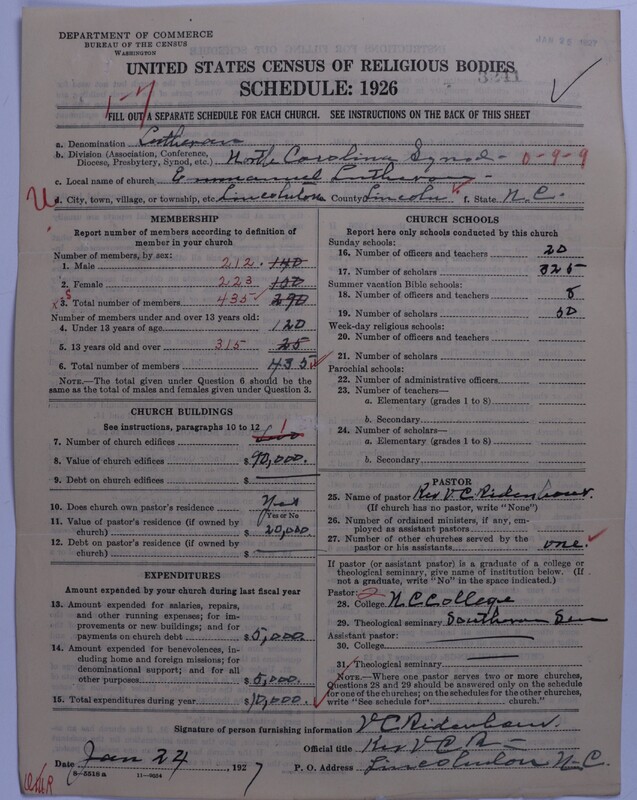 DEPARTMENT OF COMMERCE
BUREAU OF THE CENSUS
WASHINGTON
JAN 26 1927
UNITED STATES CENSUS OF RELIGIOUS BODIES
SCHEDULE: 1926
3241
1-7
FILL OUT A SEPARATE SCHEDULE FOR EACH CHURCH. SEE INSTRUCTIONS ON THE BACK OF THIS SHEET
a. Denomination Lutheran
b. Division (Association, Conference, Diocese, Presbytery, Synod, etc.) North Carolina Synod - 0-9-9
c. Local name of church Emmanuel Lutheran
U d. City, town, village, or township, etc. Lincolnton County Lincoln f. State N.C.
MEMBERSHIP
Report number of members according to definition of member in your church
Number of members, by sex:
1. Male 212 140
2. Female 223
3. Total number of members 435 290
Number of members under and over 13 years old:
4. Under 13 years of age 120
5. 13 years old and over 315 25
6. Total number of members 435
NOTE.—The total given under Question 6 should be the same as the total of males and females given under Question 3.
CHURCH BUILDINGS
See instructions, paragraphs 10 to 12
7. Number of church edifices 1
8. Value of church edifices $90,000.
9. Debt on church edifices $
10. Does church own pastor's residence Yes
Yes or No
11. Value of pastor's residence (if owned by church) $20,000.
12. Debt on pastor's residence (if owned by church) $
EXPENDITURES
Amount expended by your church during last fiscal year
13. Amount expended for salaries, repairs, and other running expenses; for improvements or new buildings; and for payments on church debt $5,000.
14. Amount expended for benevolences, including home and foreign missions; for denominational support; and for all other purposes $5,000.
15. Total expenditures during year $10,000.
CHURCH SCHOOLS
Report here only schools conducted by this church
Sunday schools:
16. Number of officers and teachers 20
17. Number of scholars 325
Summer vacation Bible schools:
18. Number of officers and teachers 8
19. Number of scholars 50
Week-day religious schools:
20. Number of officers and teachers
21. Number of scholars
Parochial schools:
22. Number of administrative officers
23. Number of teachers—
a. Elementary (grades 1 to 8)
b. Secondary
24. Number of scholars—
a. Elementary (grades 1 to 8)
b. Secondary
PASTOR
25. Name of pastor Rev V. C. Ridenhour.
(If church has no pastor, write "None")
26. Number of ordained ministers, if any, employed as assistant pastors
27. Number of other churches served by the pastor or his assistants one.
If pastor (or assistant pastor) is a graduate of a college or theological seminary, give name of institution below. (If not a graduate, write "No" in the space indicated.)
Pastor: 2
28. College N.C. College
29. Theological seminary Southern Sem
Assistant pastor:
30. College
31. Theological seminary
NOTE.—Where one pastor serves two or more churches, Questions 28 and 29 should be answered only on the schedule for one of the churches; on the schedules for the other churches, write "See schedule for church."
Signature of person furnishing information V C Ridenhour.
Official title Rev V C R
Date Jan 24, 1927 P. O. Address Lincolnton N.C.
8—5518 a 11—9024